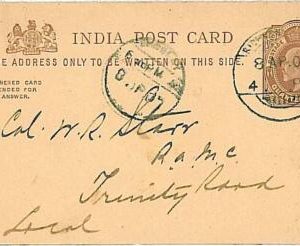 INDIA POST CARD
HE ADDRESS ONLY TO BE WRITTEN ON THIS SIDE.
NEXED CARD
ENDED FOR
ANSWER.
8 AP. 0
4
Col. W. R. Starr
R.A.M.C.
Trinity Road
Local